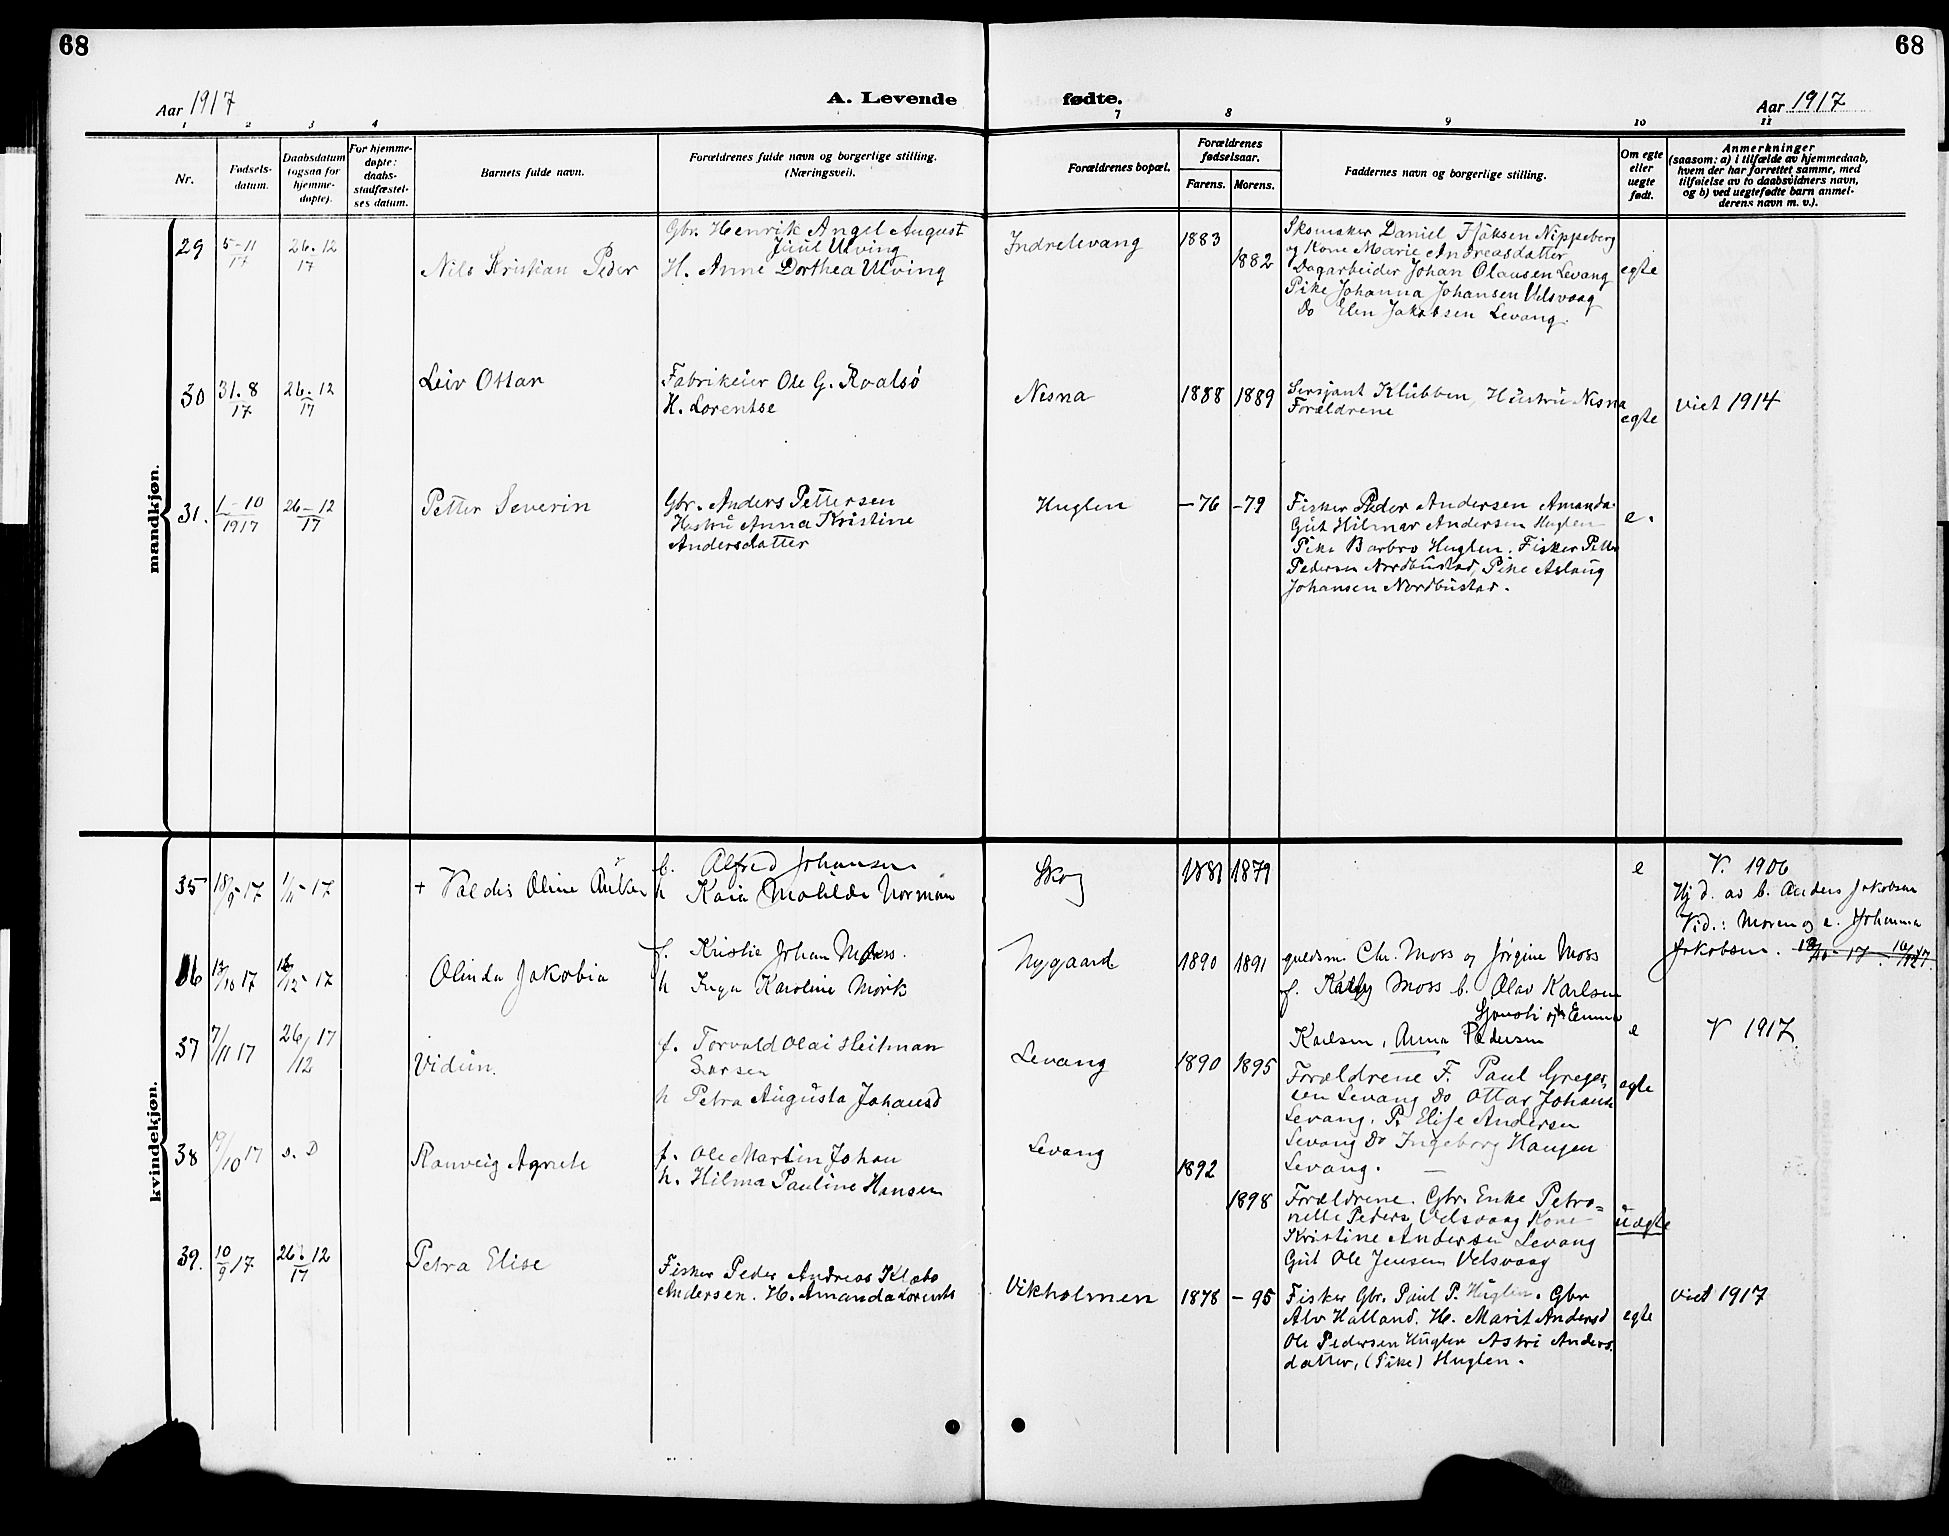 68
68
Aar 1917
A. Levende
fødte.
Aar 1917
1 2 3 4
7 8 9 10 11
Nr.
Fødsels-
datum.
Daabsdatum
(ogsaa for
hjemme-
døpte).
For hjemme-
døpte:
daabs-
stadfæstel-
ses datum.
Barnets fulde navn.
Forældrenes fulde navn og borgerlige stilling.
(Næringsvei).
Forældrenes bopæl.
Forældrenes
fødselsaar.
Farens. Morens.
Faddernes navn og borgerlige stilling.
Om egte
eller
uegte
født.
Anmerkninger
(saasom: a) i tilfælde av hjemmedaab,
hvem der har forrettet samme, med
tilføielse av to daabsvidners navn,
og b) ved uegtefødte barn anmel-
derens navn m. v.).
mandkjøn.
29
5-11
17
26-12
17
Nils Kristian Peder
Gbr. Henrik Angel August
Juul Ulving
H. Anne Dorthea Ulving
Indrelevang
1883
1882
Skomaker Daniel Isaksen Nippeberg
og Kone Marie Andreasdatter
Dagarbeider Johan Olausen Levang
Pike Johanna Johansen Velsvaag
Do Elen Jakobsen Levang
egte
30
31. 8
17
26. 12
17
Leiv Ottar
Fabrikeier Ole G. Kvalsø
H. Lorentse
Nesna
1888
1889
Sersjant Klubben, Hustru Nesna
Forældrene
egte
viet 1914
31.
1-10
1917
26-12
17
Petter Severin
Gbr. Anders Pettersen
Hustru Anna Kristine
Andersdatter
Huglen
-76
-79
Fisker Peder Andersen Amanda
Gut Hilmar Andersen Huglen
Pike Barbro Huglen. Fisker Petter
Pedersen Nordbustad, Pike Aslaug
Johansen Nordbustad.
e.
kvindekjøn.
35
18/9-17
1/11-17
+ Valdis Oline
b. Alfred Johansen
h Kaia Matilde Norman
Skog
1881
1879
e
V. 1906
Hj d. av b. Anders Jakobsen
Vid.: Moren og e. Johanna
Jakobsen.
36
13/10 17
Olinda Jakobia
f. Kristie Johan Moss.
h Inga Karoline Mørk
Nygaard
1890
1891
guldsm. Chr. Moss og Jørgine Moss
f. Kally Moss b. Olav Karlsen
Karlsen, Anna Pedersen
e
V 1917
37
7/11 17
26/12 17
Vidun.
f. Torvald Olai Heitman
Larsen
h Petra Augusta Johansd
Levang
1890
1895
Forældrene F. Paul Greger-
sen Levang Do Ottar Johans
Levang. P. Elise Andersen
Levang Do Ingeborg Haugen
Levang.
egte
38
17/10 17
s. D
Ranveig Agnete
f. Ole Martin Johan
h. Hilma Pauline Hansen
Levang
1892
1898
Forældrene. Gbr. Enke Petro-
nelle Peders Velsvaag Kone
Kristine Andersen Levang
Gut Ole Jensen Velsvaag
uægte
39.
10/9 17
26. 12
17
Petra Elise
Fisker Peder Andreas Klæbo
Andersen. H. Amanda Lorents
Vikholmen
1878
-95
Fisker Gbr. Paul P. Huglen. Gbr
Alv Halland. H. Marit Andersd
Ole Pedersen Huglen Astri Anders
datter, (Pike) Huglen.
egte
viet 1917